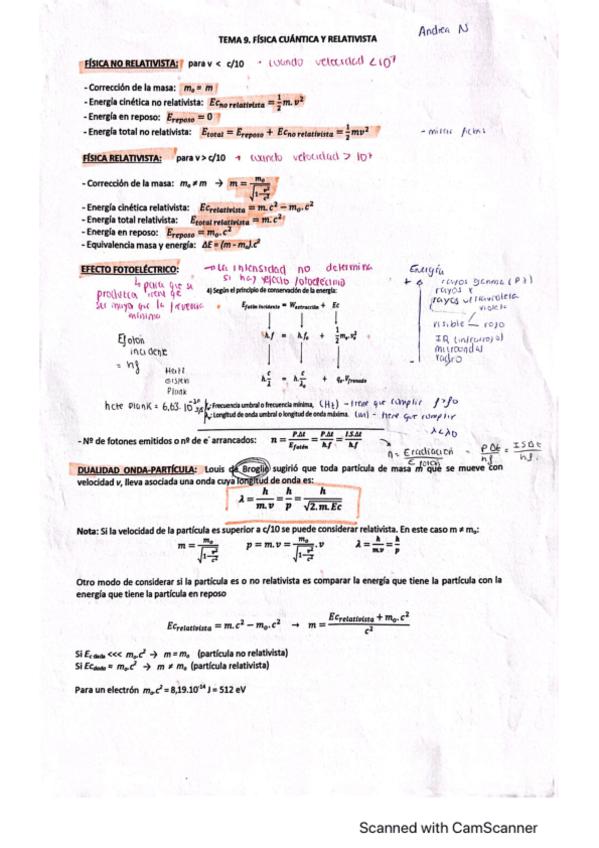 Andrea N
TEMA 9. FÍSICA CUÁNTICA Y RELATIVISTA
FÍSICA NO RELATIVISTA: para v < c/10 • cuando velocidad < 10⁷
- Corrección de la masa: mₒ = m
- Energía cinética no relativista: Ec no relativista = 1/2 m. v²
- Energía en reposo: E reposo = 0
- Energía total no relativista: E total = E reposo + Ec no relativista = 1/2 mv²
FÍSICA RELATIVISTA: para v > c/10 → cuando velocidad > 10⁷
- Corrección de la masa: mₒ ≠ m → m = mₒ/√(1-v²/c²)
- Energía cinética relativista: Ec relativista = m. c² − mₒ. c²
- Energía total relativista: E total relativista = m. c²
- Energía en reposo: E reposo = mₒ. c²
- Equivalencia masa y energía: ΔE = (m - mₒ).c²
EFECTO FOTOELÉCTRICO: → La intensidad no determina
si hay efecto fotoeléctrico
↳ para que se
produzca tiene que
ser mayor que la frecuencia
mínima
4) Según el principio de conservación de la energía:
E fotón incidente = W extracción + Ec
h.f = h.fₒ + 1/2 m.v²
h. c/λ = h. c/λₒ + qₑ.V frenado
Energía
+ rayos gamma (γ)
rayos X
rayos ultravioleta
violeta
visible - rojo
IR (infrarrojo)
microondas
radio
E fotón
incidente
= hf
Planck
h cte Planck = 6,63. 10⁻³⁴ J·s
fₒ: Frecuencia umbral o frecuencia mínima, (Hz) - tiene que cumplir f > fo
λₒ: Longitud de onda umbral o longitud de onda máxima. (m) - tiene que cumplir
λ < λo
- Nº de fotones emitidos o nº de e⁻ arrancados: n = P.Δt/E fotón = P.Δt/h.f = I.S.Δt/h.f
n = E radiación/E fotón = P Δt/hf = I S Δt/hf
DUALIDAD ONDA-PARTÍCULA: Louis de Broglie sugirió que toda partícula de masa m que se mueve con
velocidad v, lleva asociada una onda cuya longitud de onda es:
λ = h/m.v = h/p = h/√2.m.Ec
Nota: Si la velocidad de la partícula es superior a c/10 se puede considerar relativista. En este caso m ≠ mₒ:
m = mₒ/√(1-v²/c²) p = m.v = mₒ/√(1-v²/c²) .v λ = h/m.v = h/p
Otro modo de considerar si la partícula es o no relativista es comparar la energía que tiene la partícula con la
energía que tiene la partícula en reposo
Ec relativista = m. c² − mₒ. c² → m = (Ec relativista + mₒ. c²)/c²
Si Ec dada <<< mₒ.c² → m = mₒ (partícula no relativista)
Si Ec dada = mₒ.c² → m ≠ mₒ (partícula relativista)
Para un electrón mₒ.c² = 8,19.10⁻¹⁴ J = 512 eV
Scanned with CamScanner